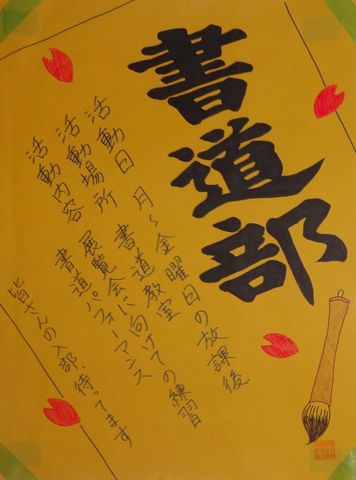 書道部
活動日　月～金曜日の放課後
活動場所　書道教室
活動内容　展覧会に向けての練習
書道パフォーマンス
皆さんの入部、待ってます